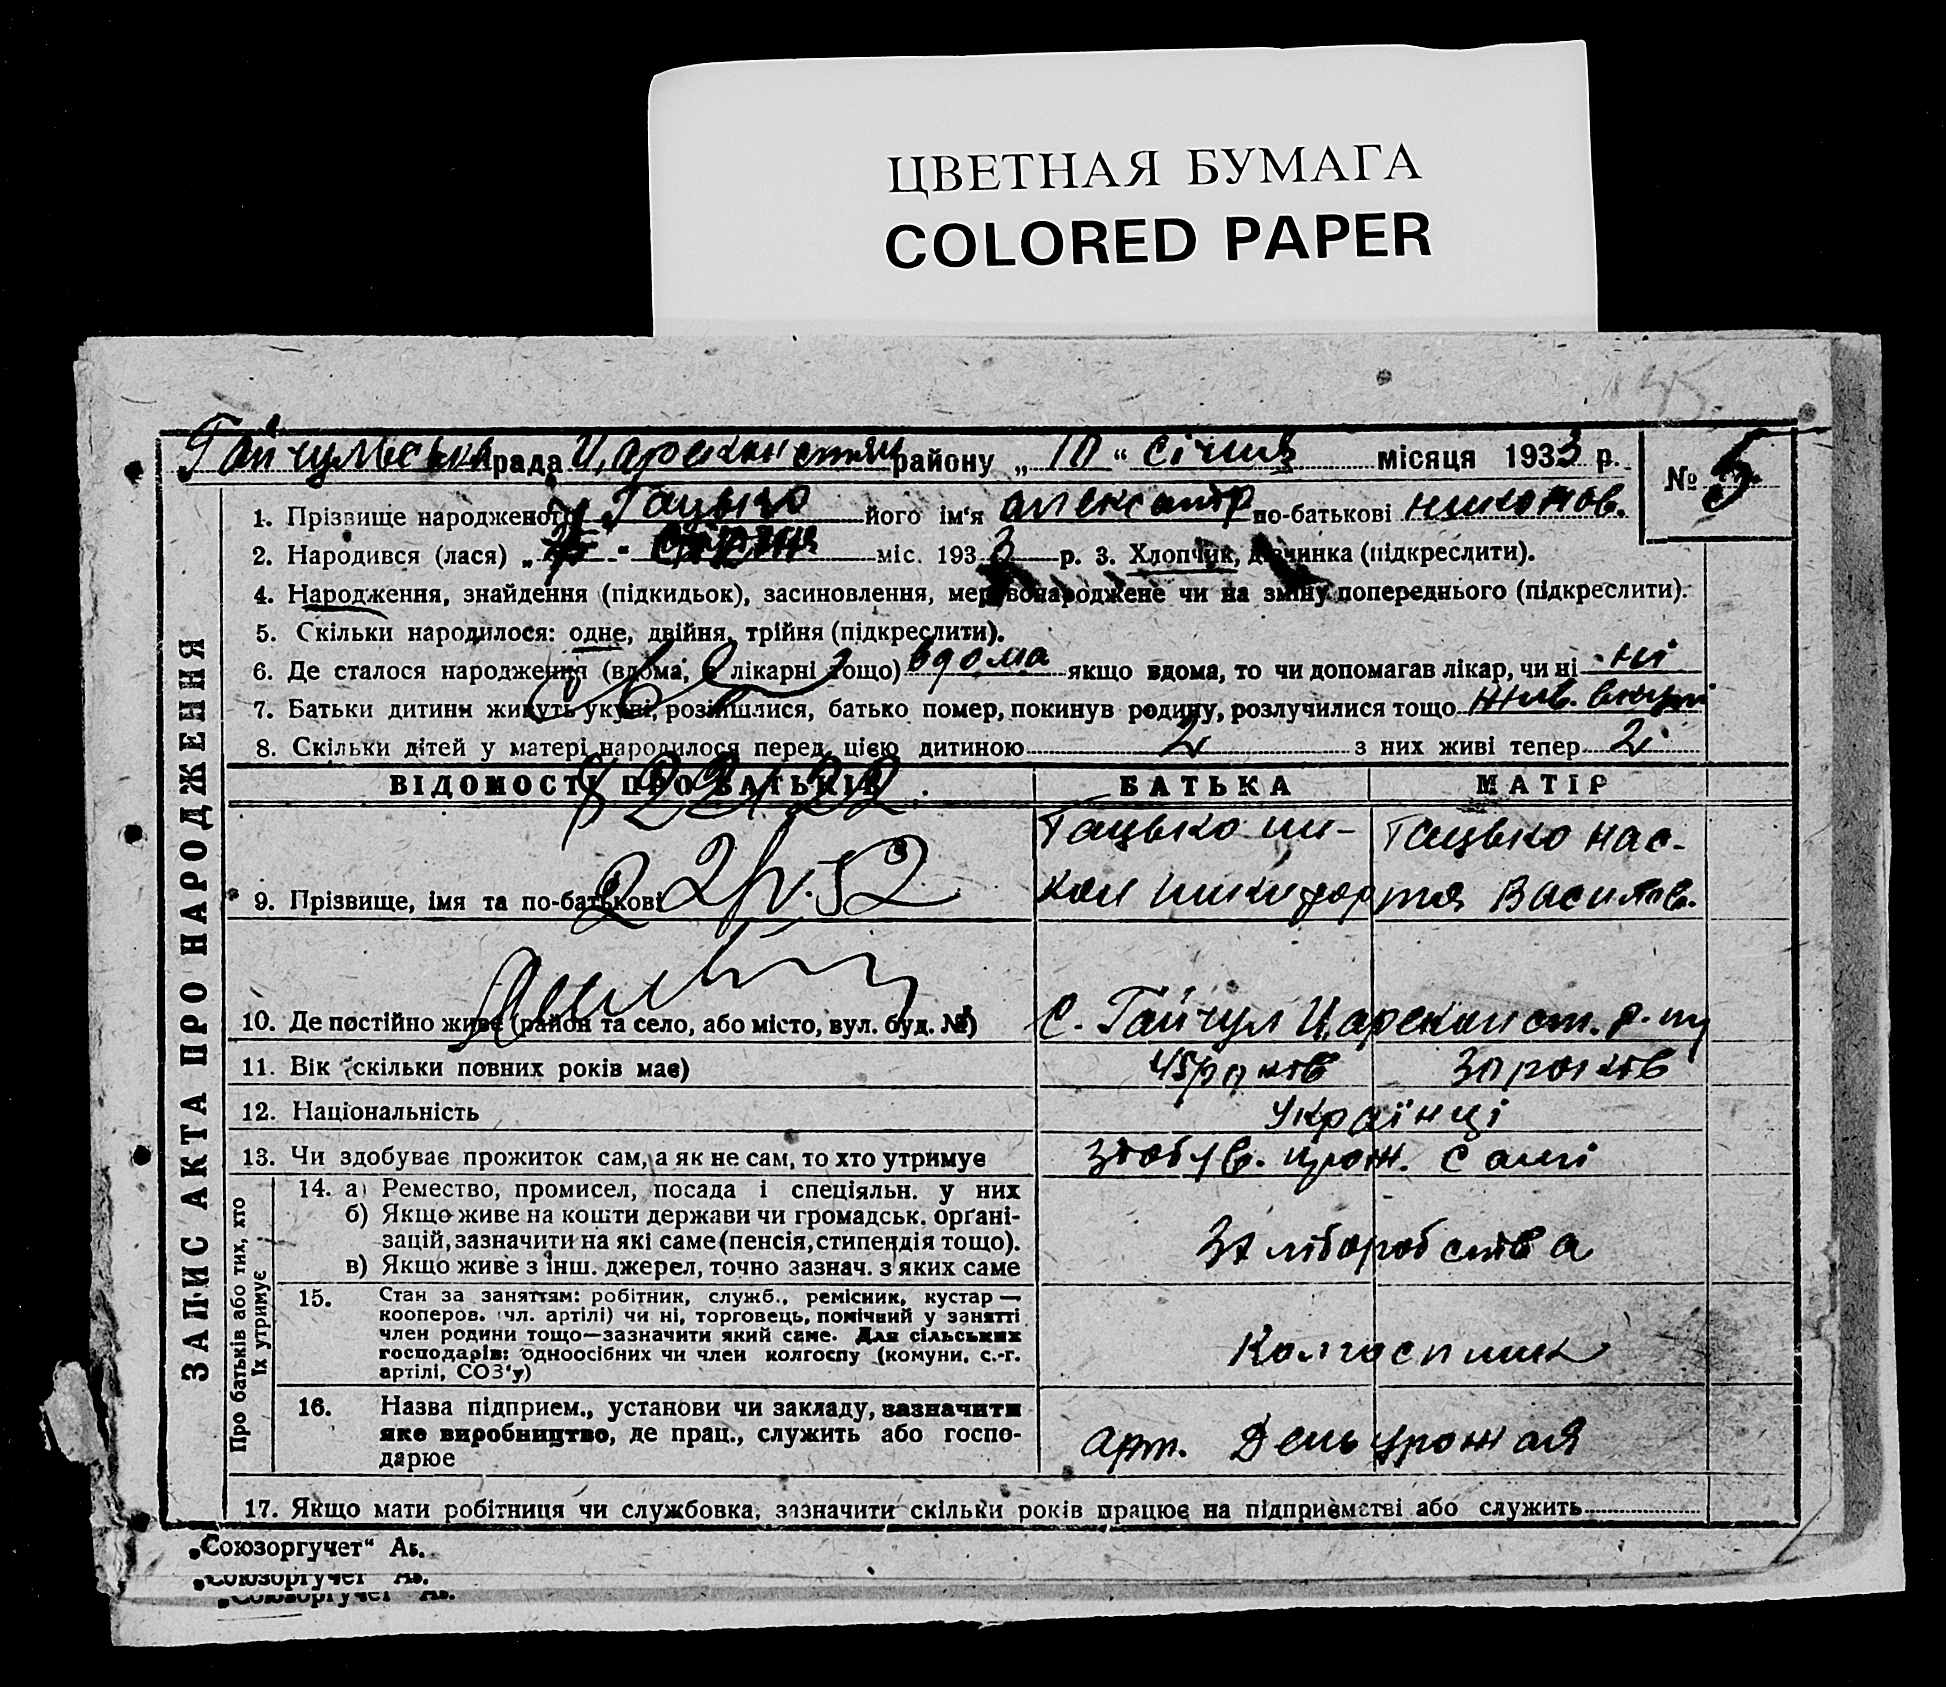 ЦВЕТНАЯ БУМАГА
COLORED PAPER
Гайчульська рада Цареконстян району „ 10 “ січня місяця 1933 р.
№ 5
1. Прізвище народженого Гацько його ім'я олександр по-батькові никонов.
2. Народився (лася) „ “ міс. 1933 р. 3. Хлопчик, дівчинка (підкреслити).
4. Народження, знайдення (підкидьок), засиновлення, мертвонароджене чи на зміну попереднього (підкреслити).
5. Скільки народилося: одне, двійня, трійня (підкреслити).
6. Де сталося народження (вдома, в лікарні тощо) вдома якщо вдома, то чи допомагав лікар, чи ні ні
7. Батьки дитини живуть укупі, розійшлися, батько помер, покинув родину, розлучилися тощо жив. вкупі
8. Скільки дітей у матері народилося перед цією дитиною 2 з них живі тепер 2
ВІДОМОСТІ ПРО БАТЬКІВ БАТЬКА МАТІР
Гацько ни- Гацько нас-
9. Прізвище, імя та по-батькові кон никифор тя Василів.
22/IV.52
10. Де постійно живе (район та село, або місто, вул. буд. №) с. Гайчул Цареконст. р-ну
11. Вік (скільки повних років має) 45 років 30 років
12. Національність українці
13. Чи здобуває прожиток сам, а як не сам, то хто утримує здобув. прож. самі
14. а) Ремество, промисел, посада і спеціяльн. у них
б) Якщо живе на кошти держави чи громадськ. орґані-
зацій, зазначити на які саме (пенсія, стипендія тощо).
в) Якщо живе з інш. джерел, точно зазнач. з яких саме
З хліборобства
15. Стан за заняттям: робітник, служб., ремісник, кустар —
кооперов. (чл. артілі) чи ні, торговець, помічний у занятті
член родини тощо—зазначити який саме. Для сільських
господарів: одноосібних чи член колгоспу (комуни, с.-г.
артілі, СОЗ'у)
Колгоспник
16. Назва підприєм., установи чи закладу, зазначити
яке виробництво, де прац., служить або госпо-
дарює
арт. День урожая
17. Якщо мати робітниця чи службовка, зазначити скільки років працює на підприємстві або служить
ЗАПИС АКТА ПРО НАРОДЖЕННЯ
Про батьків або тих, хто
їх утримує
„Союзоргучет“ Ав.
„Союзоргучет“ Ав.
„Союзоргучет“ Ав.